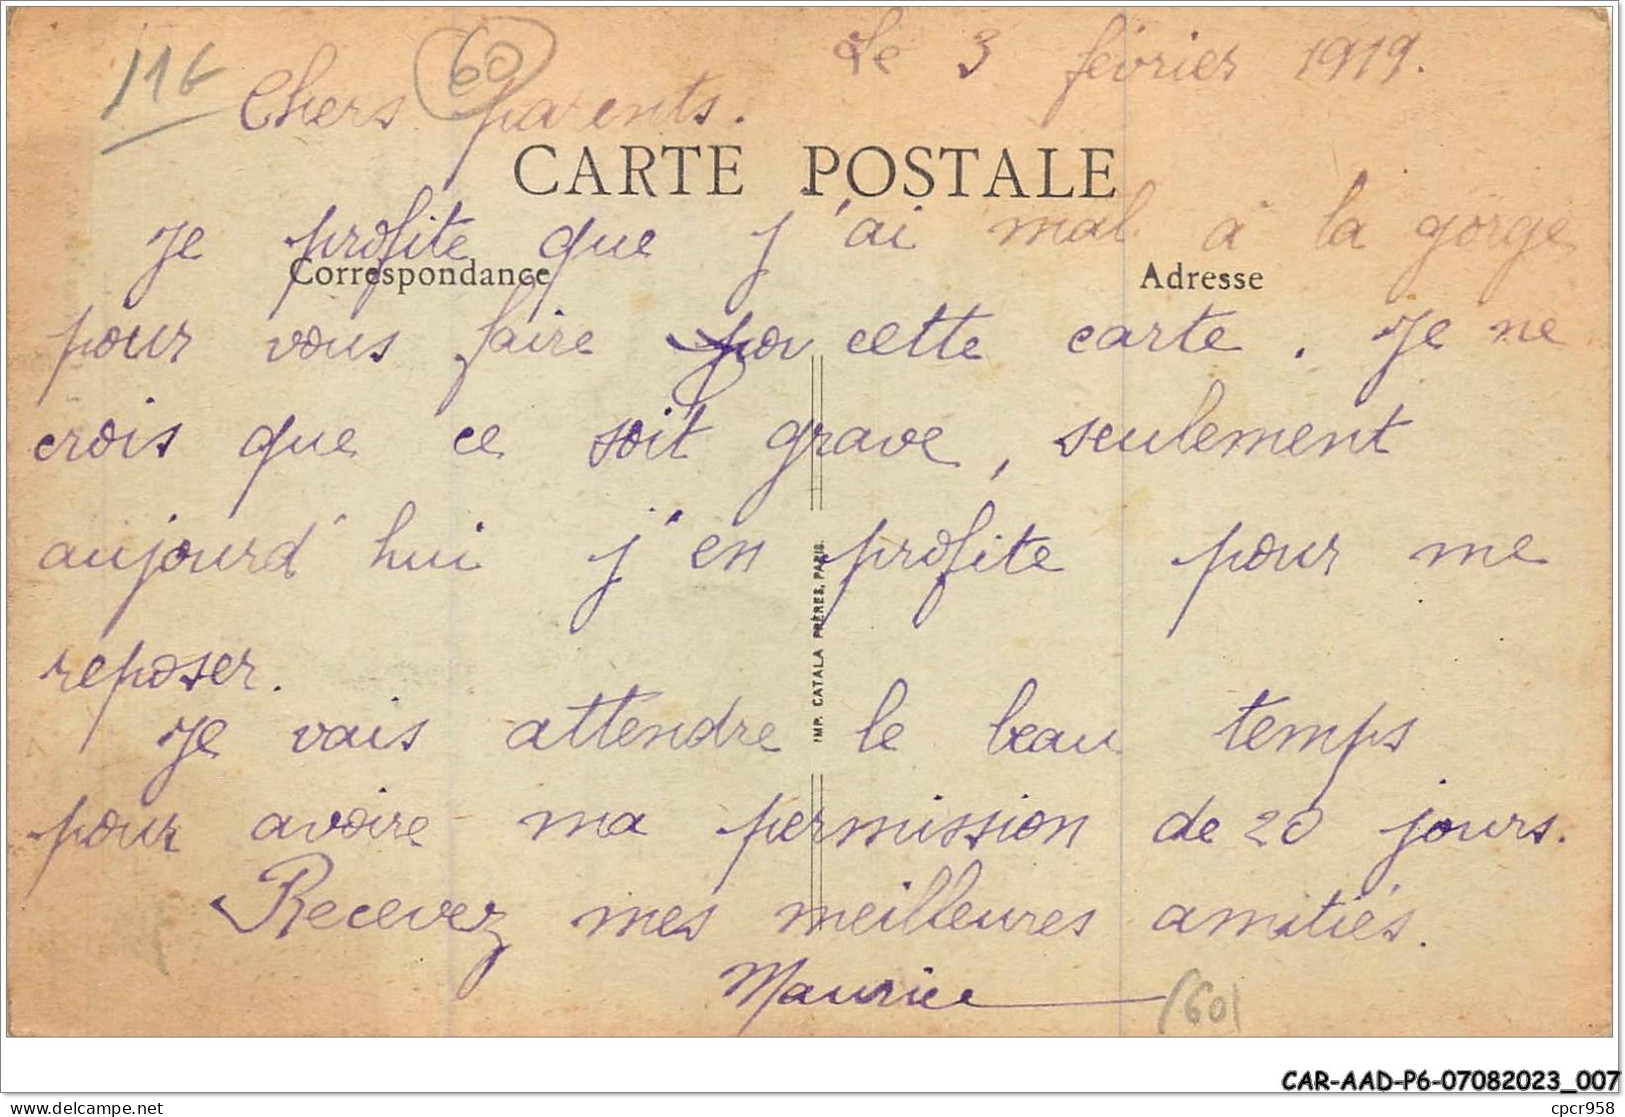 116
60
Le 3 février 1919.
Chers parents.
CARTE POSTALE
Je profite que j'ai mal à la gorge
Correspondance
Adresse
pour vous faire cette carte. Je ne
crois que ce soit grave, seulement
aujourd'hui j'en profite pour me
reposer.
IMP. CATALA FRÈRES, PARIS.
Je vais attendre le beau temps
pour avoire ma permission de 20 jours.
Recevez mes meilleures amitiés.
Maurice
(60)
CAR-AAD-P6-07082023_007
delcampe.net
cpcr958